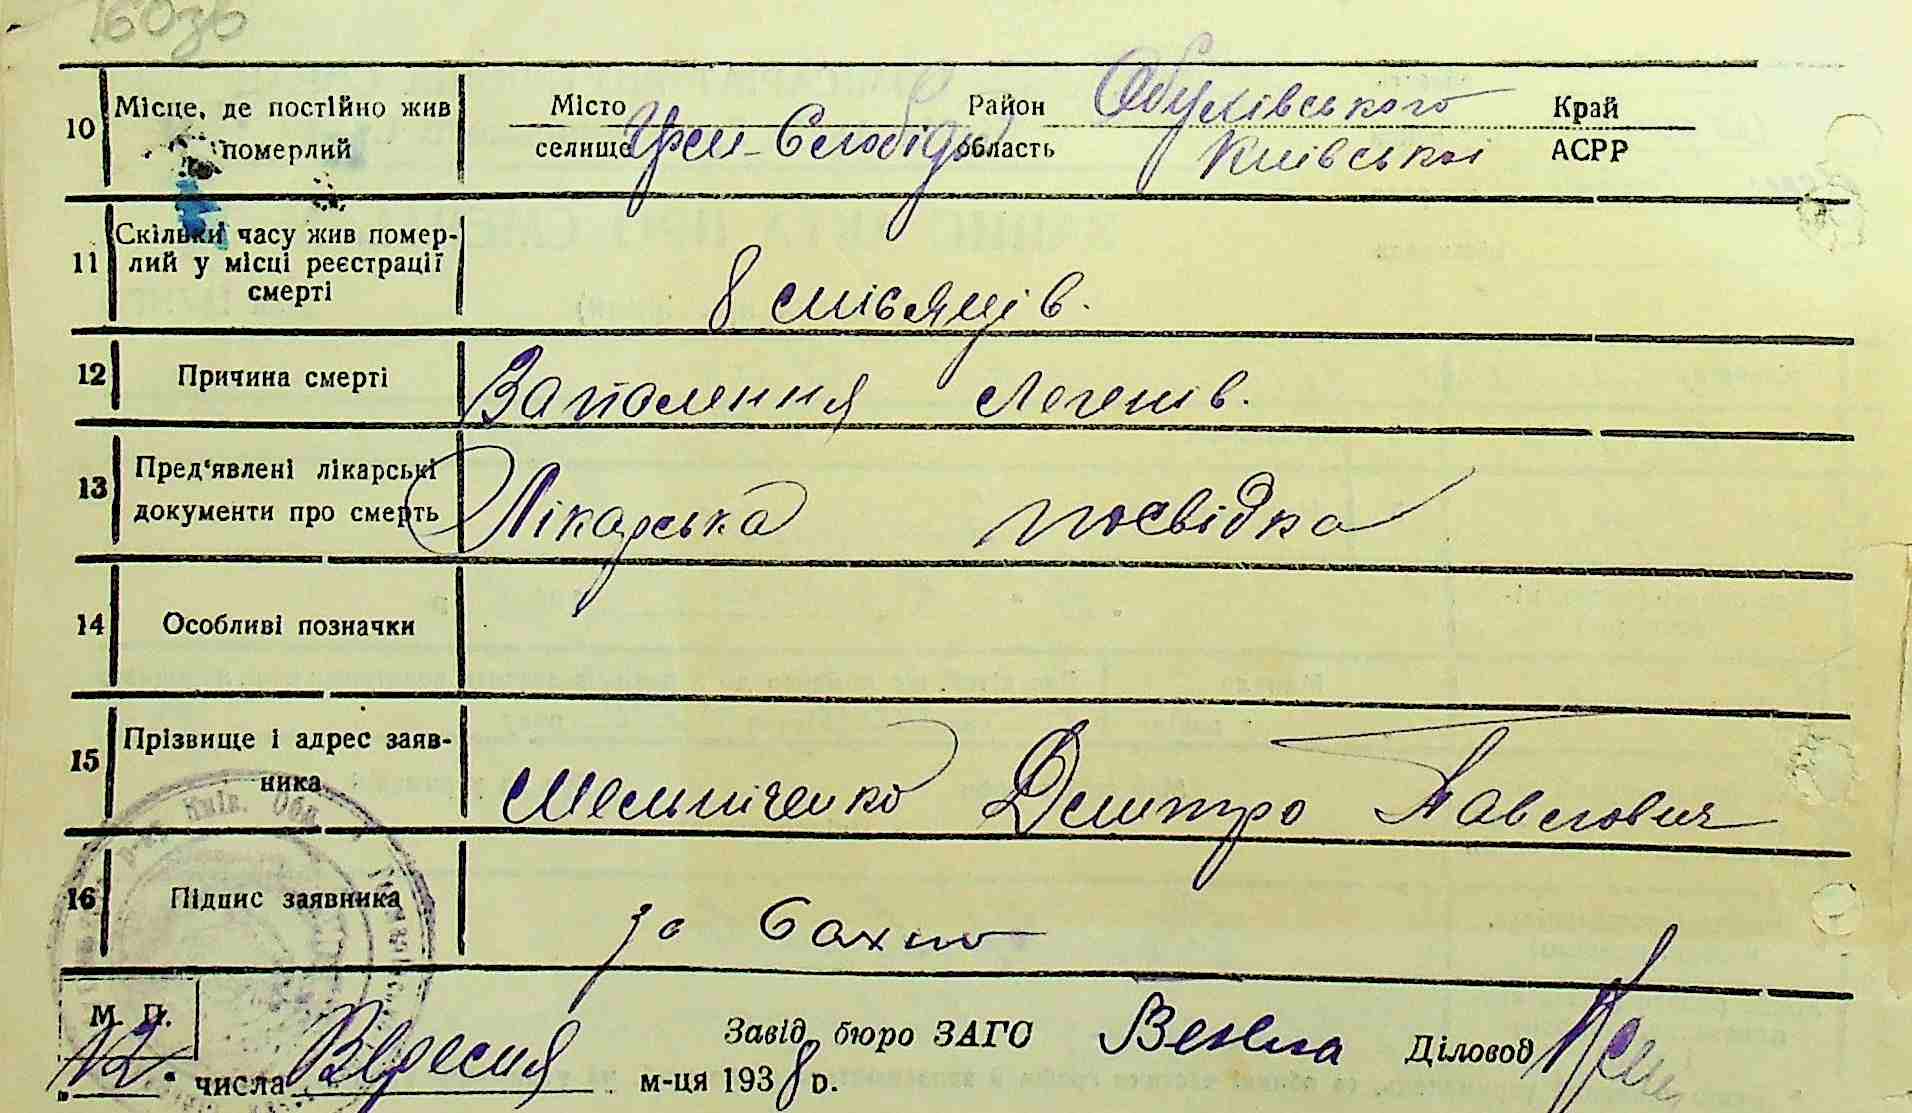 10 Місце, де постійно жив Місто Район Обухівського Край
померлий селище Слобідка область Київської АСРР
11 Скільки часу жив помер-
лий у місці реєстрації
смерті 8 місяців.
12 Причина смерті Запалення легенів.
13 Пред‘явлені лікарські
документи про смерть Лікарська посвідка
14 Особливі позначки
15 Прізвище і адрес заяв-
ника Мельніченко Дмитро Павлович
16 Підпис заявника за
М. П. Завід. бюро ЗАГС Діловод
„12“ числа Вересня м-ця 1938 р.